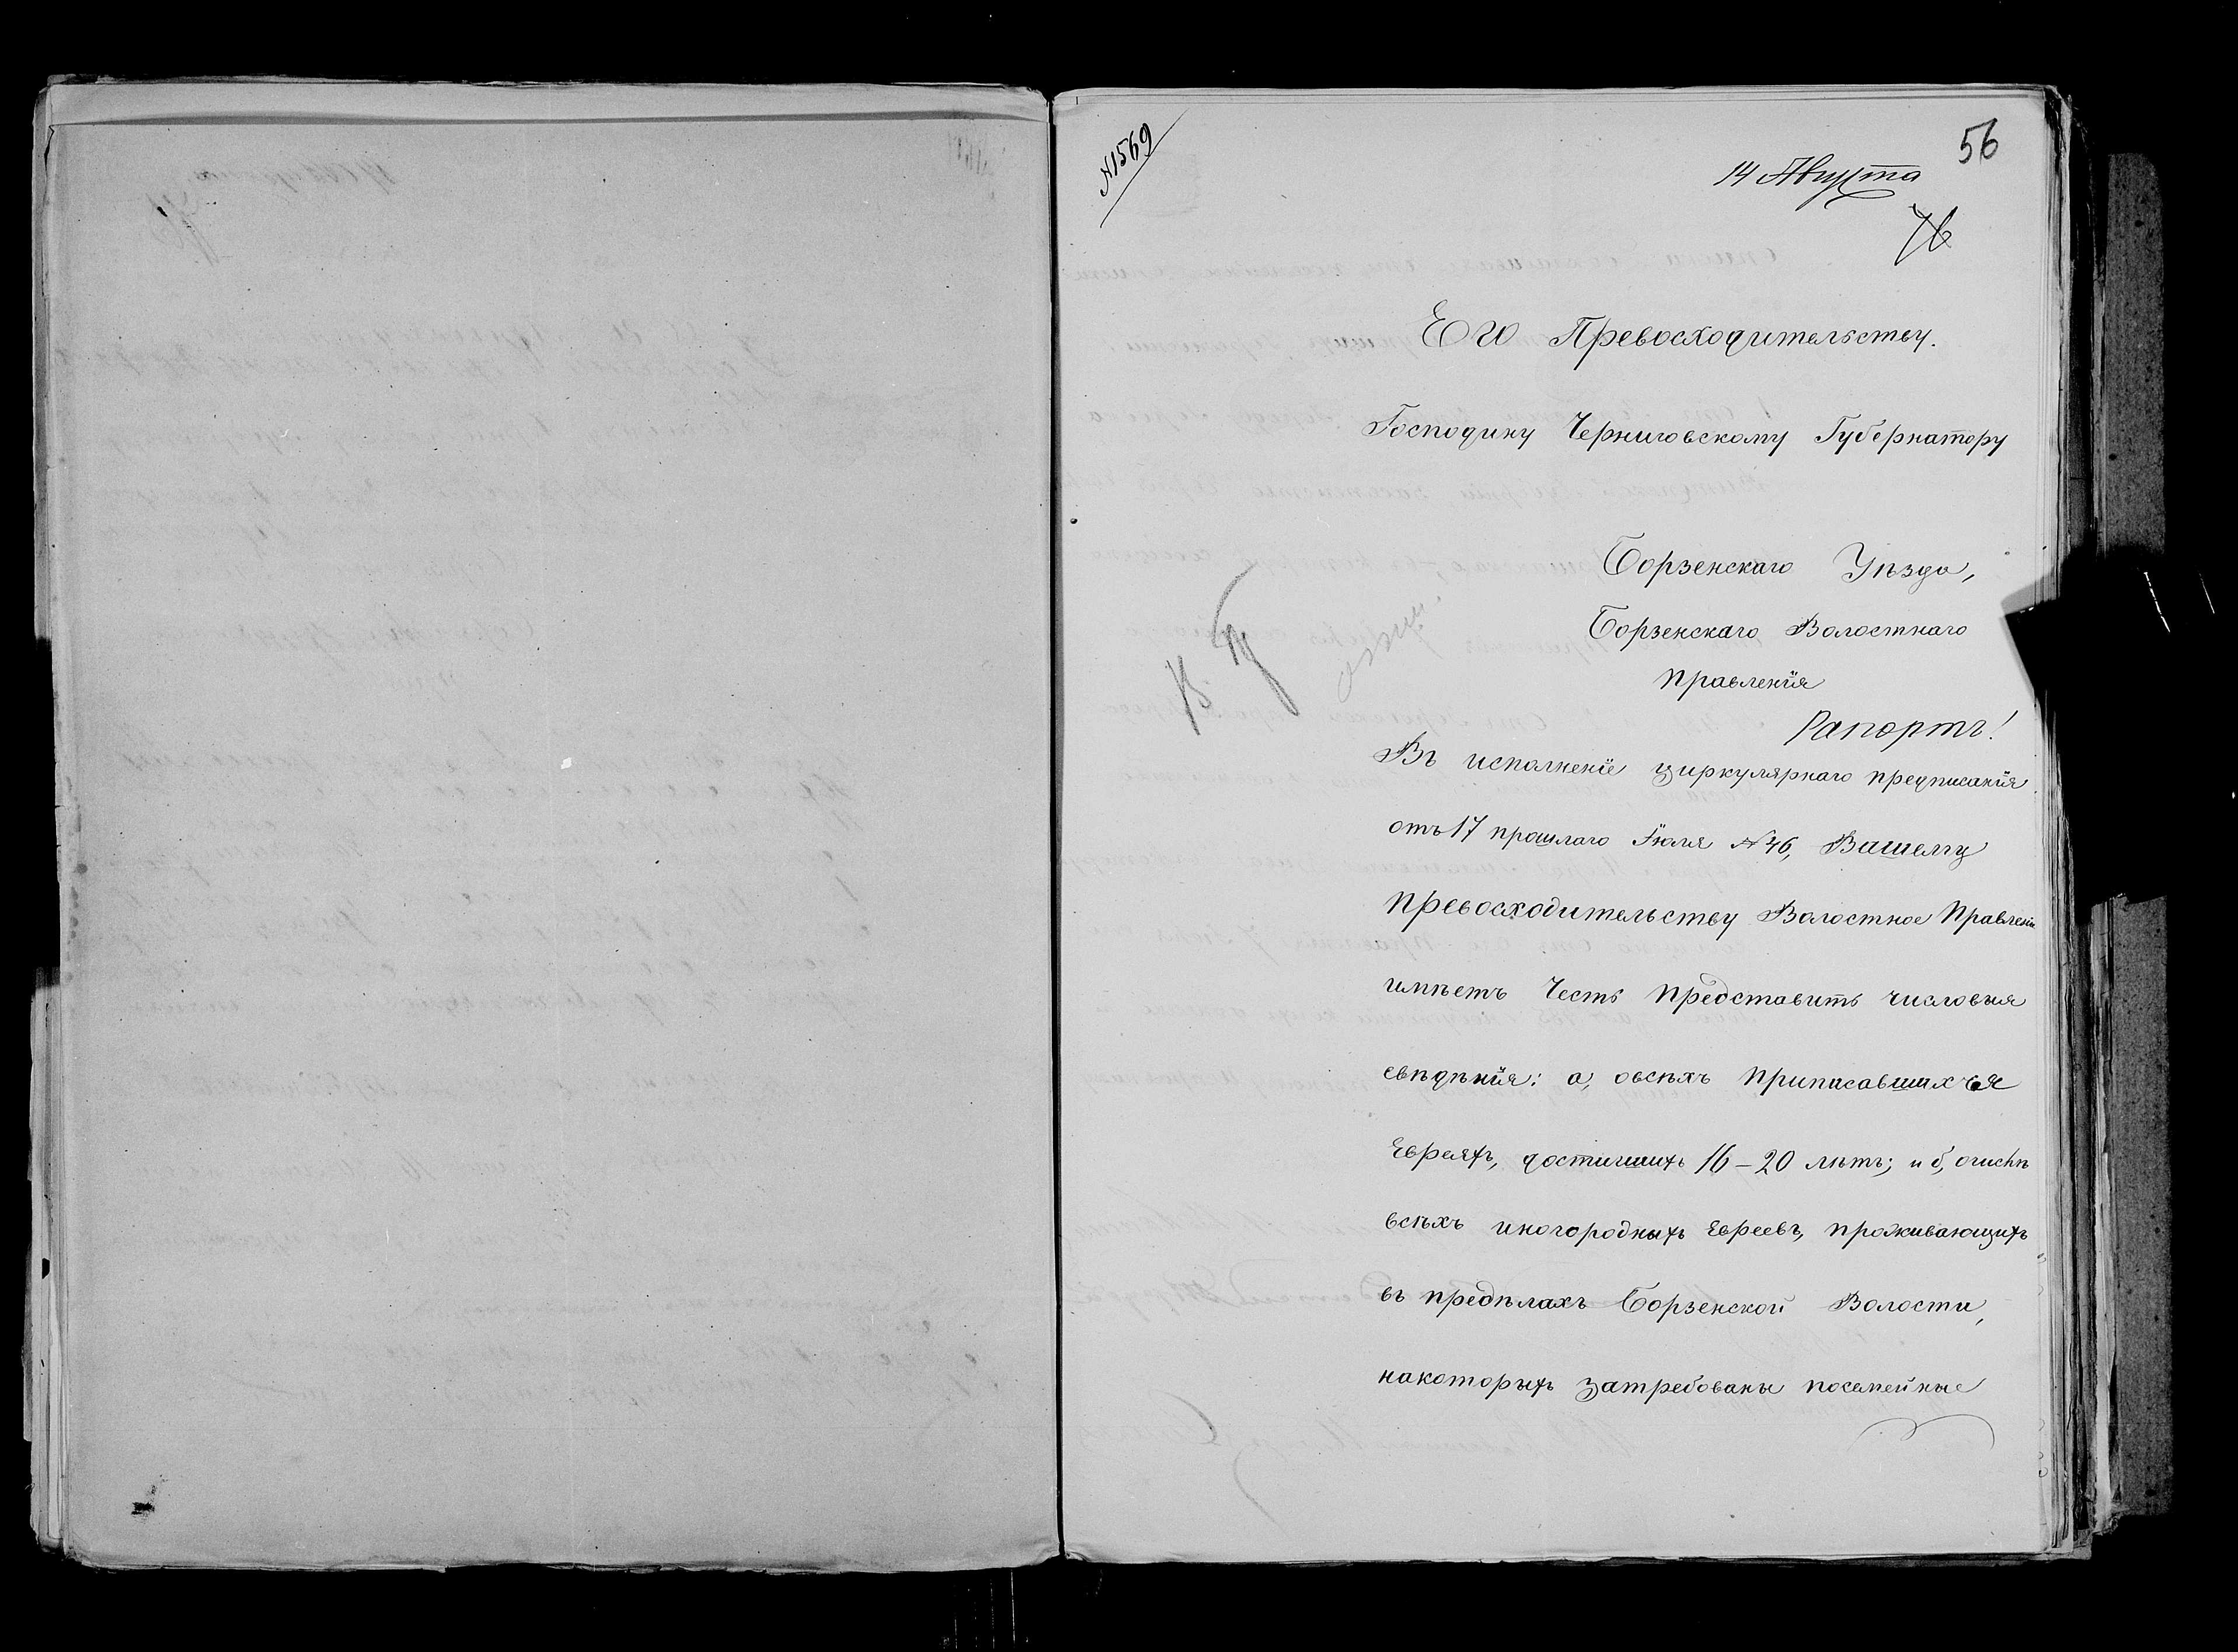 56
№1569
14 Августа
76
Его Превосходительству.
Господину Черниговскому Губернатору
Борзенскаго Уѣзда,
Борзенскаго Волостнаго
Правленія
Рапортъ!
Въ исполненіе циркулярнаго предписанія
отъ 17 прошлаго Іюля №46, Вашему
Превосходительству Волостное Правленіе
имѣетъ Честь представить числовыя
свѣдѣнія: а, овсѣхъ приписавшихся
Евреяхъ, достигшихъ 16–20 лѣтъ; и б, очислѣ
всѣхъ иногородныхъ Евреевъ, проживающихъ
въ предѣлахъ Борзенской Волости,
накоторыхъ затребованы посемейные